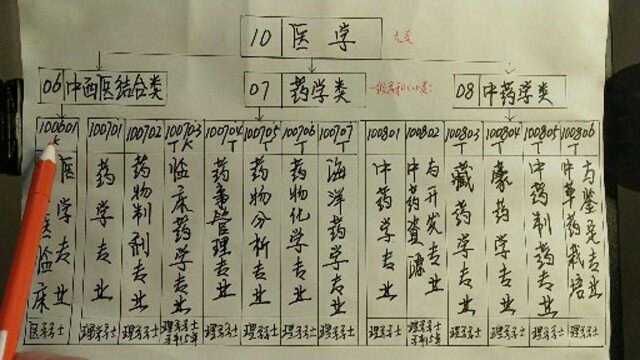 10 医学
06 中西医结合类
07 药学类
08 中药学类
100601K
100701
100702
100703TK
100704T
100705T
100706T
100707T
100801
100802
100803T
100804T
100805T
100806T
医学专业
医临床
药学专业
药物制剂专业
临床药学专业
药事管理专业
药物分析专业
药物化学专业
海洋药学专业
中药学专业
中药资源
与开发专业
藏药学专业
蒙药学专业
中药制药专业
中草药栽培
与鉴定专业
医学学士
理学学士
理学学士
理学学士
理学学士
理学学士
理学学士
理学学士
理学学士
理学学士
理学学士
理学学士
理学学士
理学学士